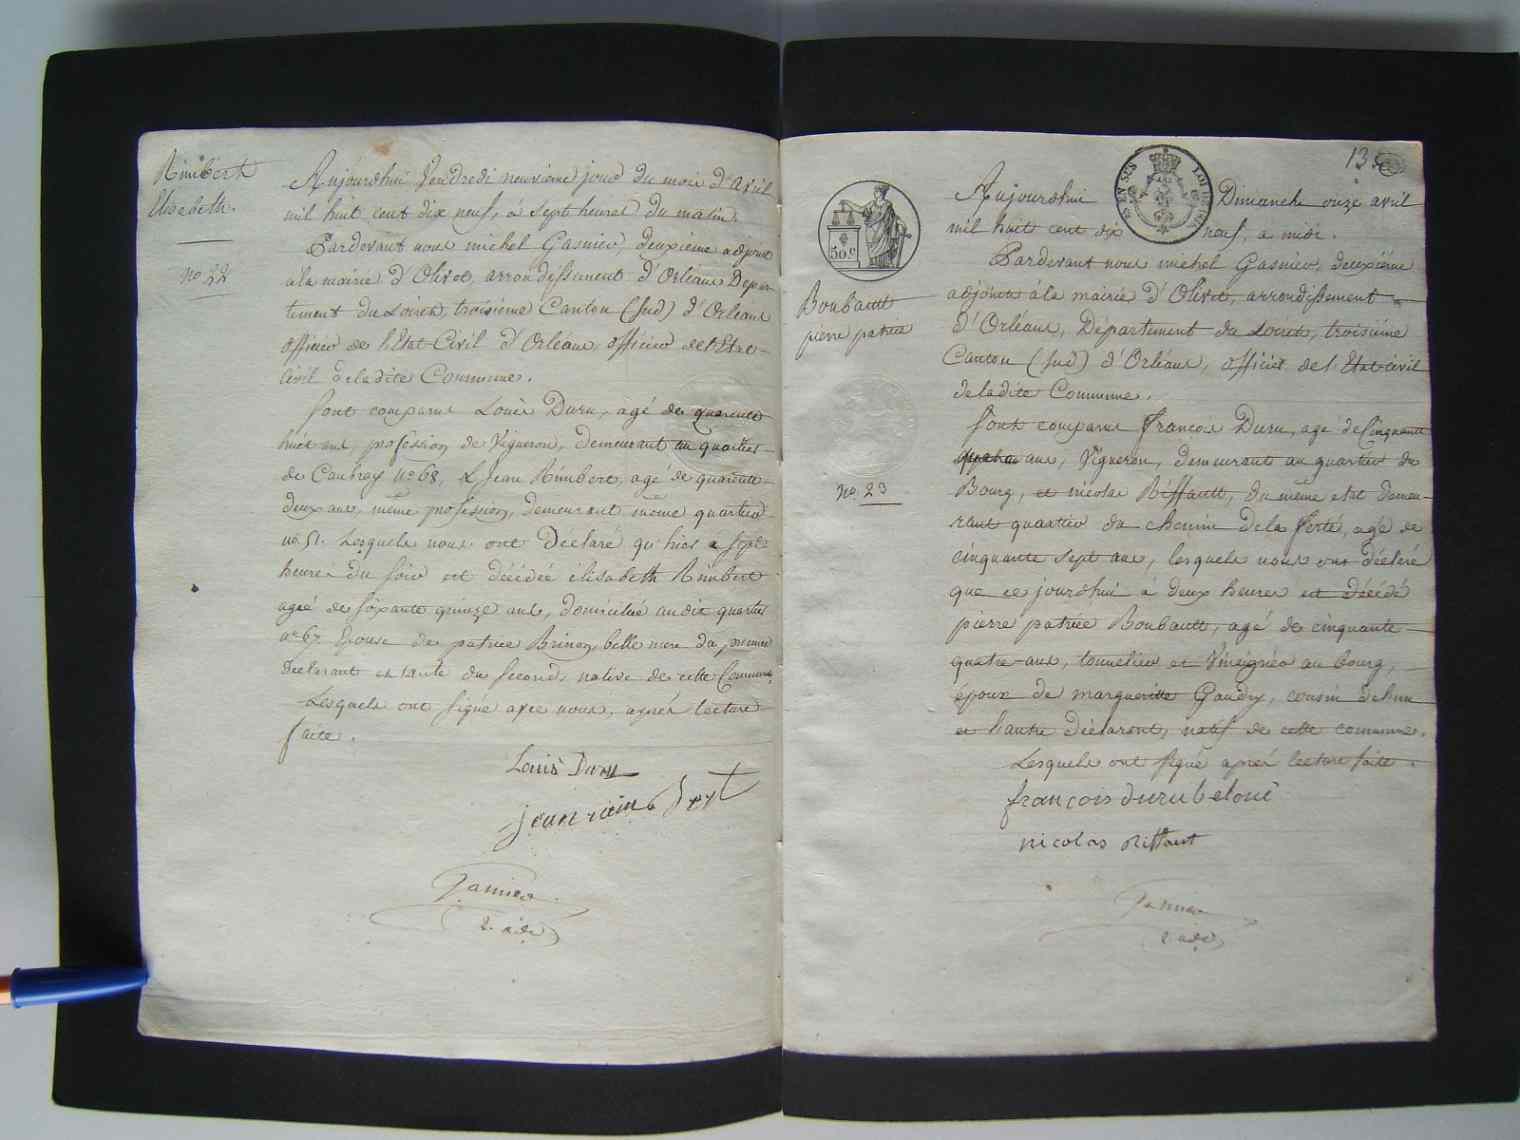 Rimbert
Elisabeth.
no 22
Aujourdhui Vendredi neuvieme jour du mois d'avril
mil huit cent dix neuf, à sept heures du matin.
Pardevant nous michel Gasnier, deuxième adjoint
à la mairie d'Olivet, arrondissement d'Orléans Depar-
tement du Loiret, troisième Canton (sud) d'Orléans
officier de l'Etat Civil d'Orléans, officier de l'Etat
Civil de ladite Commune.
Sont comparus Louis Duru, agé de quarente
huit ans, profession de Vigneron, demeurant au quartier
de Caubray no 68, & Jean Rimbert, agé de quarante
deux ans, même profession, demeurant même quartier
no 51. Lesquels nous ont Déclaré qu'hier a sept
heures du soir est décédée élisabeth Rimbert
agée de soixante quinze ans, domiciliée audit quartier
no 67. Epouse de patrice Brinon, belle mere du premier
declarant et tante du second, native de cette Commune,
Lesquels ont signé avec nous, après lecture
faite.
Louis Duru
jean
Gasnier
2. adj
135
50 c
EN SUS
LOI DE
Boubault
pierre patrice
no. 23
Aujourdhui Dimanche onze avril
mil huit cent dix neuf, a midi.
Pardevant nous michel Gasnier, deuxième
adjoint à la mairie d'Olivet, arrondissement
d'Orléans, Département du Loiret, troisième
Canton (sud) d'Orléans, officier de l'Etat civil
de ladite Commune.
Sont comparus françois Duru, age de Cinquante
ans, Vigneron, demeurant au quartier du
Bourg, et nicolas Riffault, du même etat demeu-
rant quartier du chemin de la ferté, agé de
cinquante sept ans, lesquels nous ont déclaré
que ce jourdhui à deux heures est décédé
pierre patrice Boubault, agé de cinquante
quatre ans, tonnelier et Vinaigrier au bourg,
époux de marguerite Gaudry, cousin de l'un
et l'autre déclarant, natif de cette commune.
Lesquels ont signé après lecture faite.
françois duru beloué
nicolas Riffault
Gasnier
2. adj